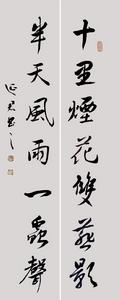 十里煙花雙燕影
半天風雨一蟲聲